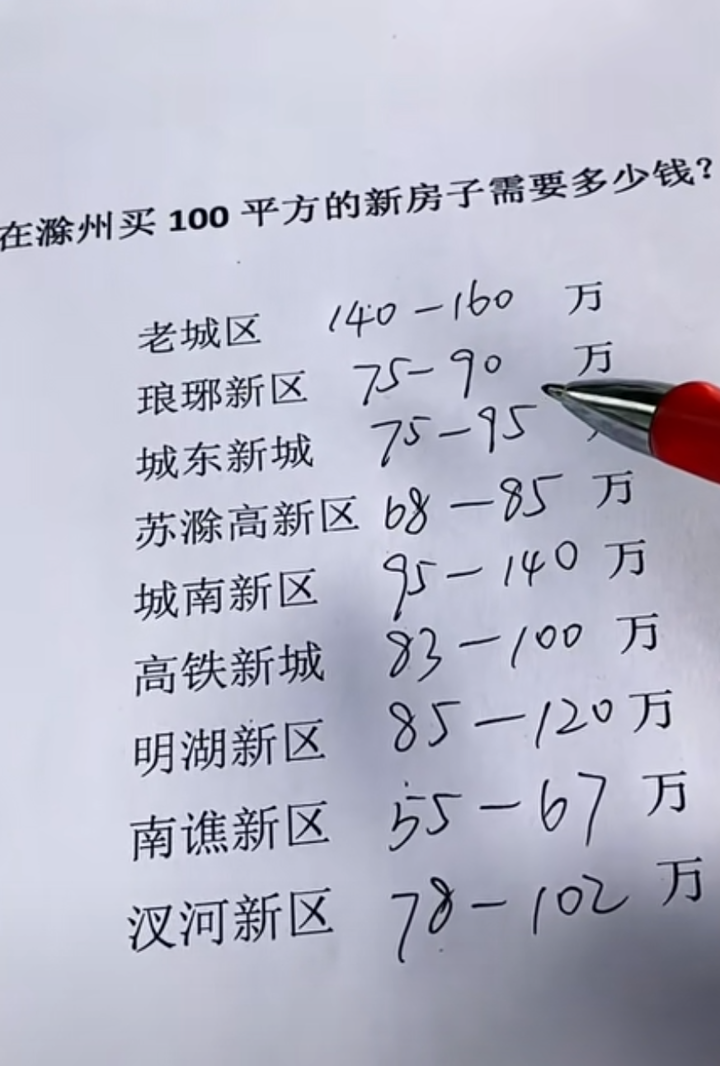 在滁州买 100 平方的新房子需要多少钱?
老城区 140-160 万
琅琊新区 75-90 万
城东新城 75-95
苏滁高新区 68-85 万
城南新区 95-140 万
高铁新城 83-100 万
明湖新区 85-120 万
南谯新区 55-67 万
汊河新区 78-102 万